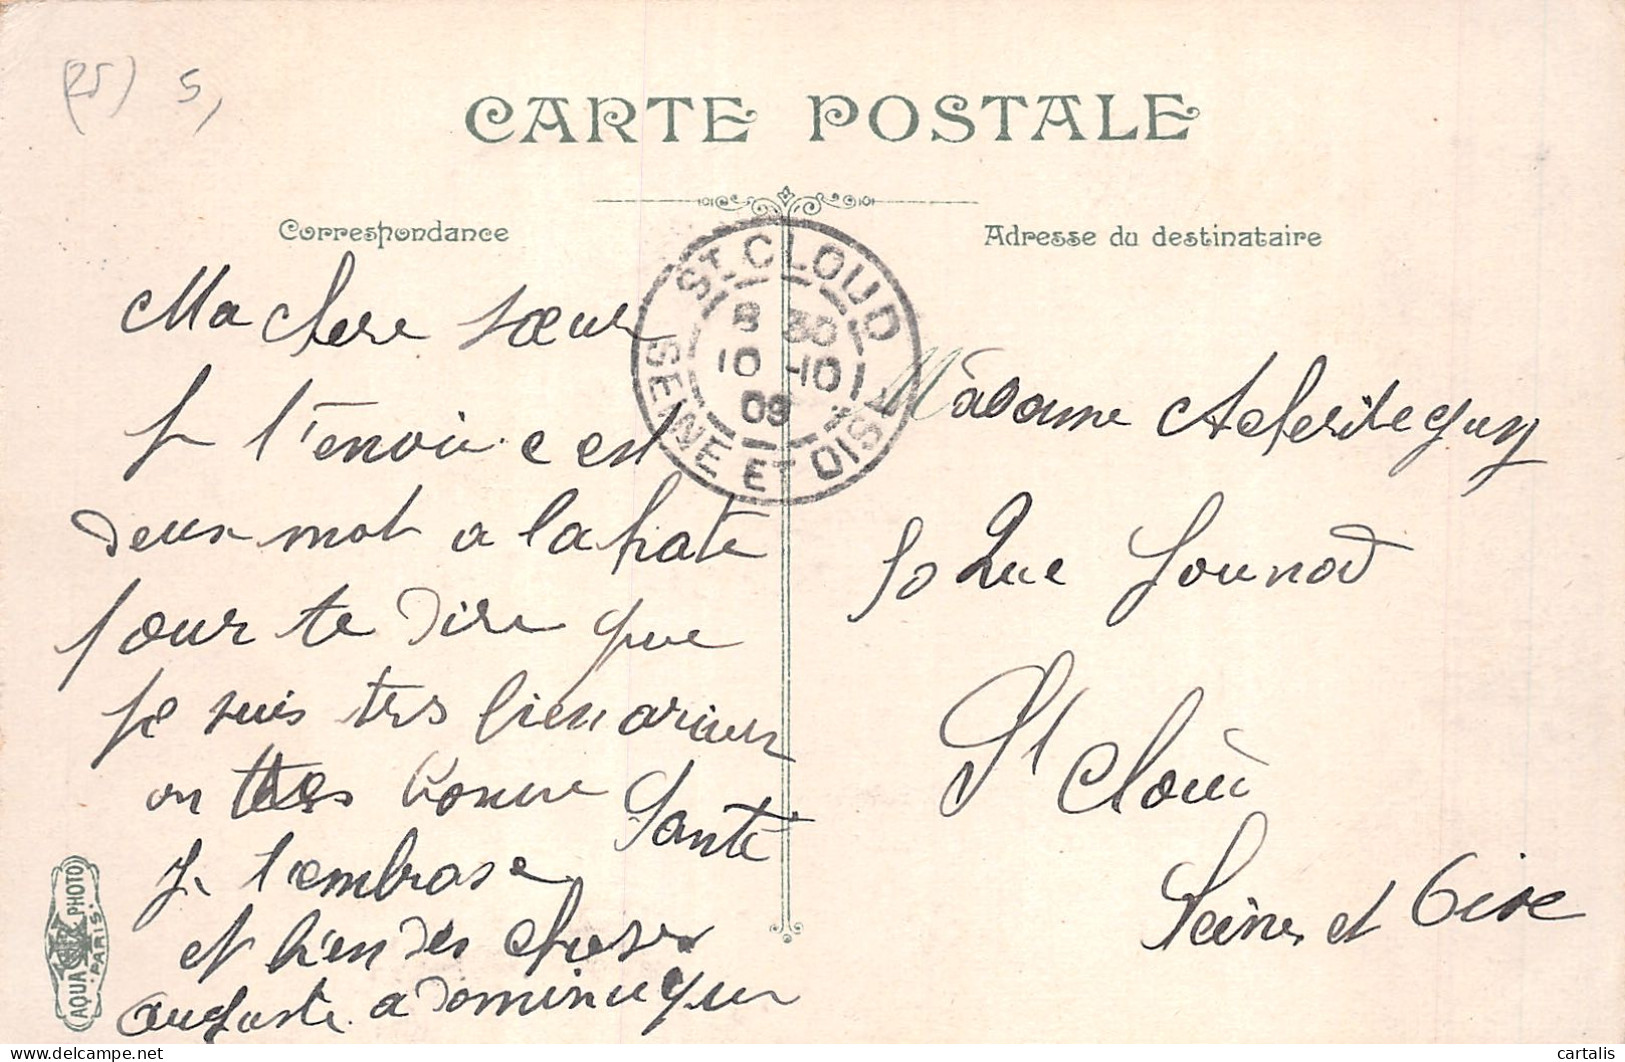 (25) 5,
CARTE POSTALE
Correspondance
Adresse du destinataire
ST CLOUD
8 30
10 -10
09
SEINE ET OISE
Ma chere sœur
Je t'envoie c est
deux mot a la hate
pour te dire que
je suis tres bien arivez
on tres bonne Santé
Je t'embrase
et bien des choses
auguste a dominique
Madame
50 Rue Gounod
St Clou
Seine et Oise
AQUA PHOTO
PARIS
cartalis